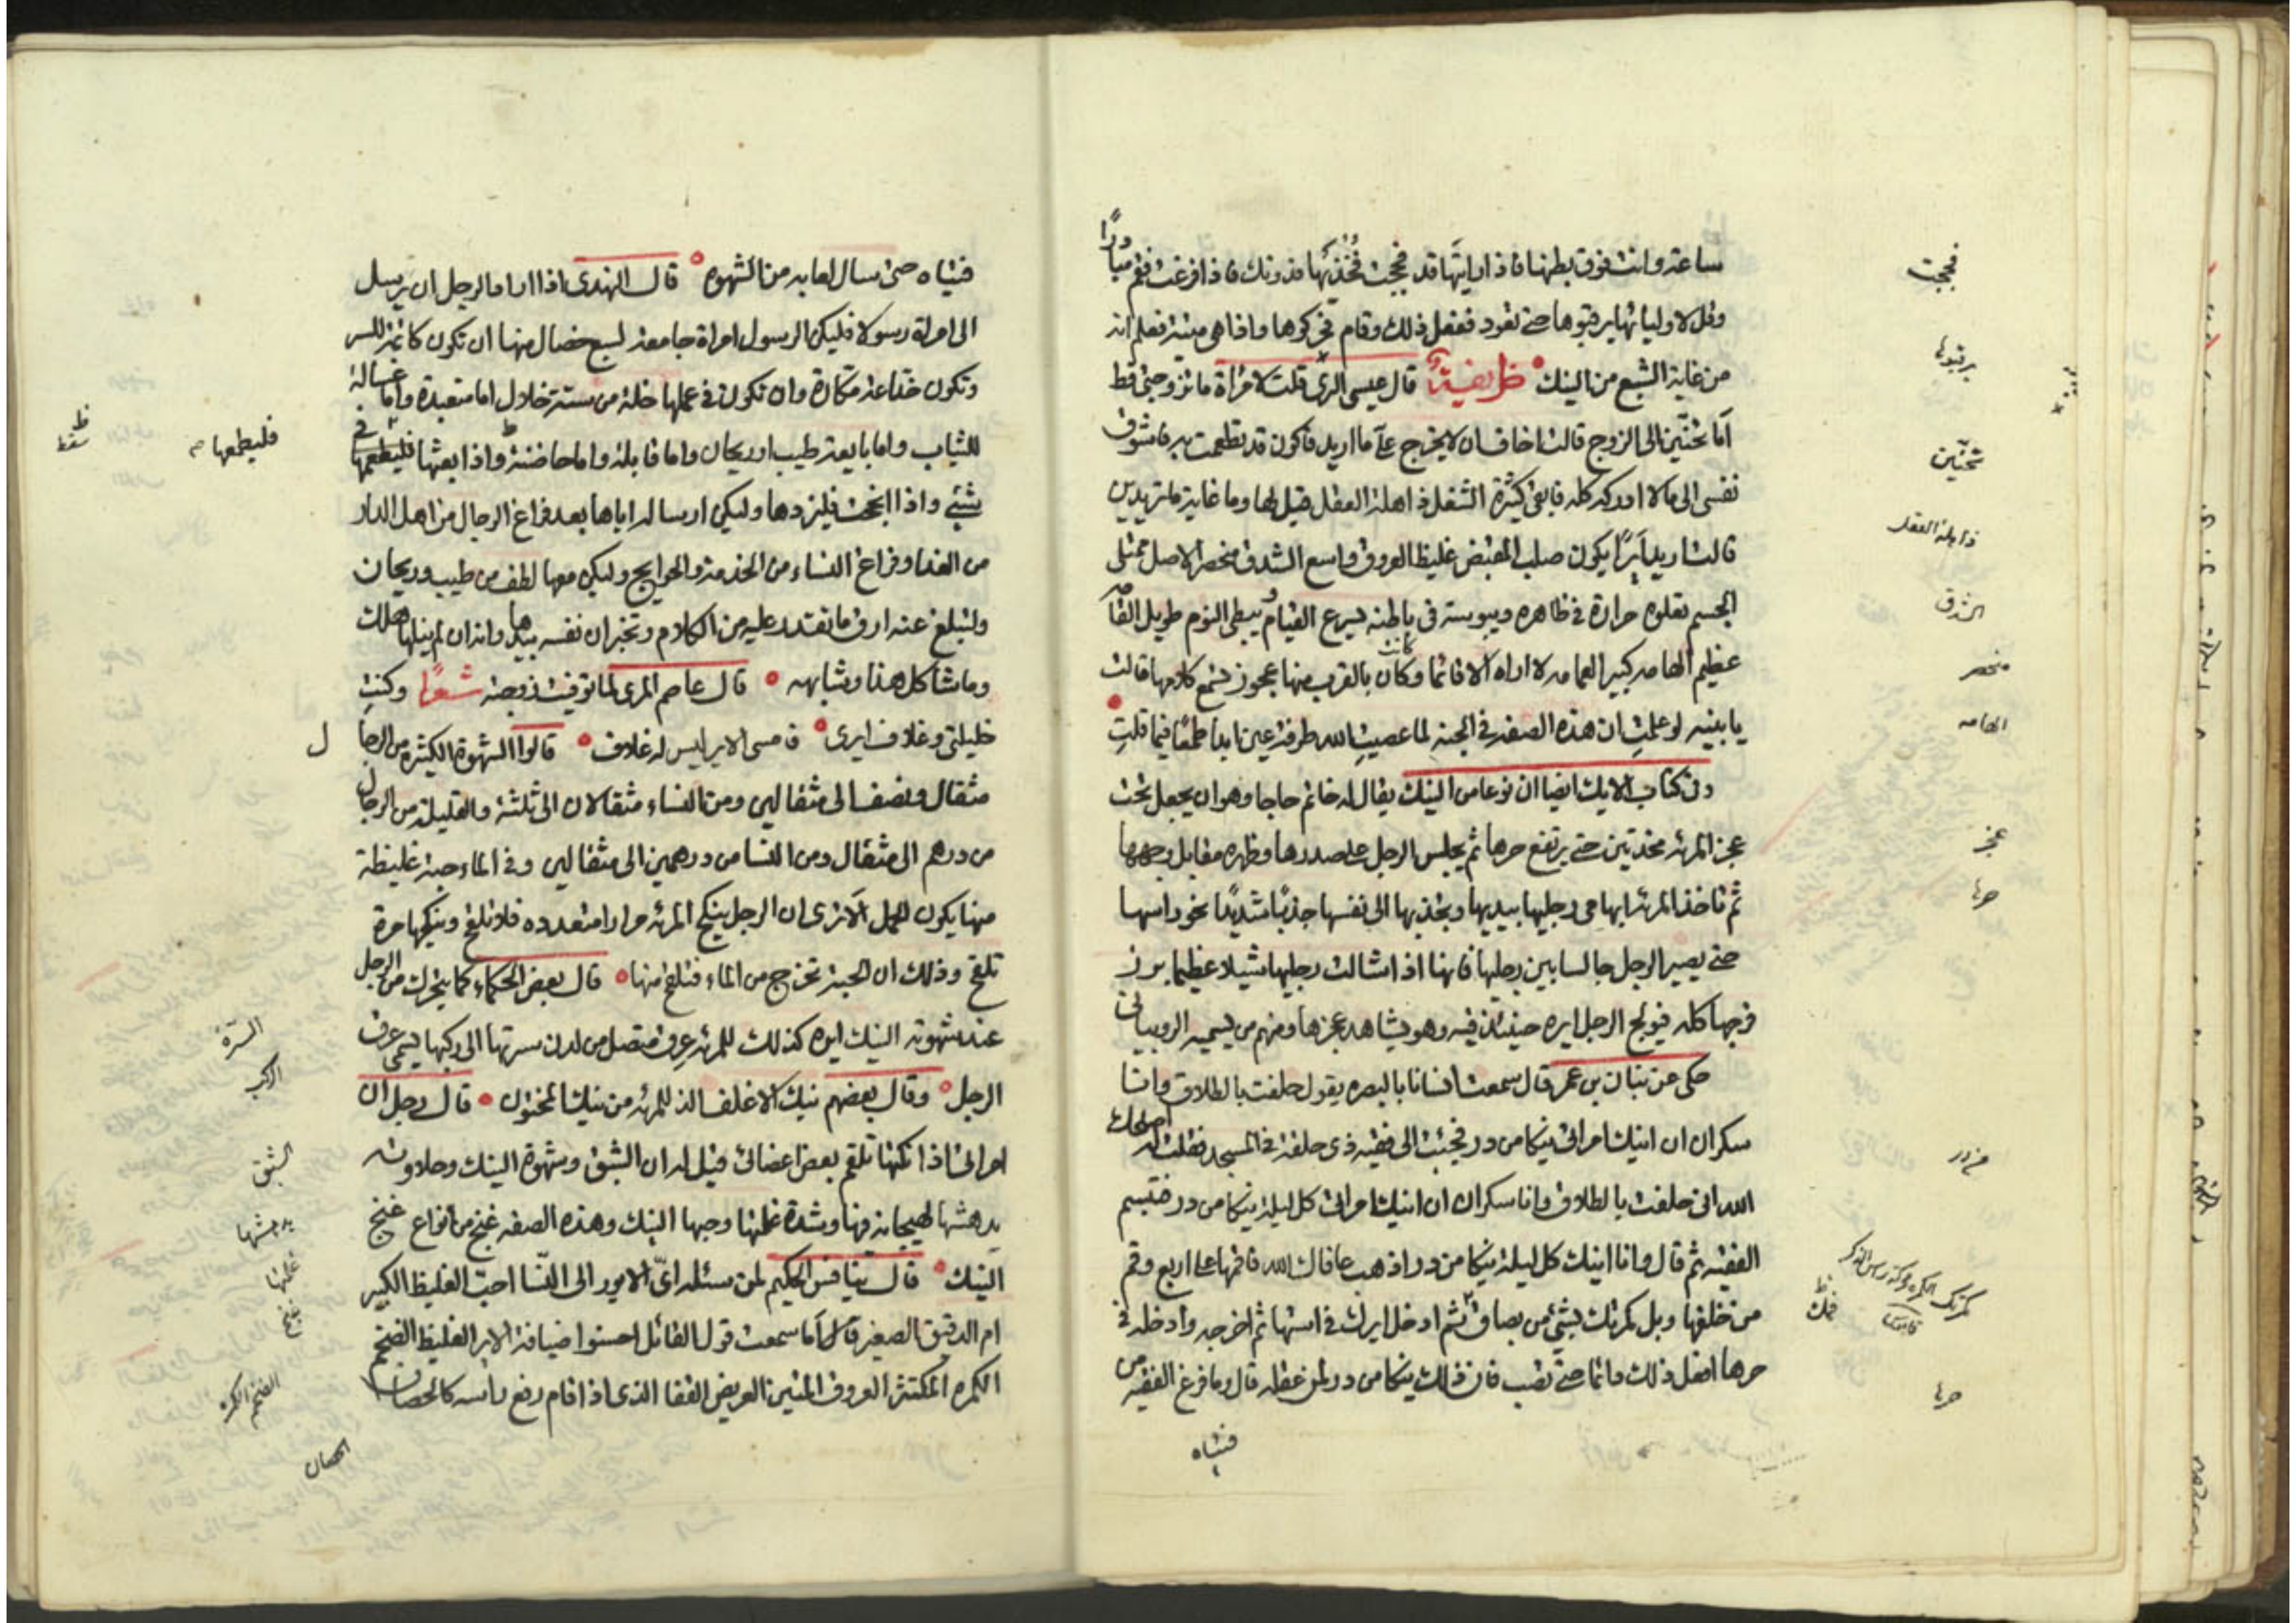 ساعة وانت فوق بطنها فاذا رايتها قد فججت فخذيها فدونك فاذا فرغت فقم مبادرًا
وقل لاوليائها يرقبوها حتى تعود ففعل ذلك وقام فحركوها واذا هى ميتة فعلم انه
من غاية الشبع من النيك ظريفة قال عيسى قلت لامراة ما تزوجتى قط
اما تحنّين الى الزوج قالت اخاف ان لا يخرج على ما اريد فاكون قد تطعمت به فاشوف
نفسى الى ما لا ادركه كله فابقى كثيرة الشغل ذاهلة العقل قيل لها وما غاية ما تريدين
قالت اريد ايرًا يكون صلب المقبض غليظ العروق واسع الشدق منحصر الاصل ممتلى
الجسم تعلوه حرارة فى ظاهره ويبوسة فى باطنه سريع القيام وبطى النوم طويل القامه
عظيم الهامه كبير العمامه لا اراه الا قائما وكان بالقرب منها عجوز تسمع كلامها قالت
يا بنيه لو علمتِ ان هذه الصفة فى الجنه لما عصيتِ الله طرفة عين ابدا طمعًا فيما قلتِ
وفى كتاب الايك ايضا ان نوعا من النيك يقال له خاتم حاجا وهو ان يجعل تحت
عجز المرئه مخدتين حتى يرتفع حرها ثم يجلس الرجل على صدرها وظهره مقابل وجهها
ثم تاخذ المرئه ابهامى رجليها بيديها وتجذبها الى نفسها جذبًا شديدًا نحو راسها
حتى يصير الرجل جالسا بين رجليها فانها اذا شالت رجليها شيلا عظيما برز
فرجها كله فيولج الرجل ايره حينئذ فيه وهو يشاهد عجزها ومنهم من يسميه
حكى عن بنان بن عمر قال سمعت انسانا بالبصره يقول حلفت بالطلاق وانا
سكران ان انيك امراتى نيكا من در فجئت الى فقيه ذى حلقة فى المسجد فقلت له اصلحك
الله انى حلفت بالطلاق وانا سكران ان انيك امراتى كل ليلة نيكا من در فتبسم
الفقيه ثم قال وانا انيك كل ليلة نيكا من در اذهب عافاك الله فاقمها على اربع وقم
من خلفها وبل كمرتك بشئ من بصاق ثم ادخل ايرك فى استها ثم اخرجه وادخله فى
حرها افعل ذلك دائما حتى تصب فان ذلك نيكا من در لمن عقله قال وما فرغ الفقيه من
فتياه
فججت
يرقبوها
تحنّين
ذاهلة العقل
الشدق
منحصر
الهامه
عجز
حرها
من در
كمرتك الكمره محركة راس الذكر
قاموس
حرها
فتياه حتى سال لعابه من الشهوه قال الهندى اذا اراد الرجل ان يرسل
الى امراة رسولا فليكن الرسول امراة جامعة لسبع خصال منها ان تكون كاتمة للسر
وتكون خداعة مكّارة وان تكون فى عملها خلة من ستة خلال اما متعبدة واما غسالة
للثياب واما بايعة طيب او ريحان واما قابلة واما حاضنة واذا بعثها فليطعمها فى
شئ واذا انجحت فليزدها وليكن ارساله اياها بعد فراغ الرجال من اهل الدار
من الغدا وفراغ النساء من الخدمة والحوايج وليكن معها لطف من طيب وريحان
ولتبلغ عنه ارق ما تقتدر عليه من الكلام وتخبر ان نفسه بيدها وانه ان لم ينلها هلك
وما شاكل هذا وشابهه قال عاصم المرى لما توفيت زوجته شعرًا وكنتِ
خليلتى وغلاف ايرى فامسى الاير ليس له غلاف قالوا الشهوة الكثيره من الرجال
مثقال ونصف الى مثقالين ومن النساء مثقالان الى ثلثة والقليلة من الرجال
من درهم الى مثقال ومن النسا من درهمين الى مثقالين وفى الماء حبة غليظة
منها يكون الحمل الا ترى ان الرجل ينكح المرئه مرارا متعدده فلا تلقح وينكحها مرة
تلقح وذلك ان الحبة تخرج من الماء فتلقح منها قال بعض الحكماء كما يتحرك من الرجل
عند شهوته النيك ايره كذلك للمرئه عرق متصل من لدن سرتها الى ركبها يسمى عرف
الرجل وقال بعضهم نيك الاغلف الذ للمرئه من نيك المختون قال رجل ان
امراتى اذا نكتها تلقم بعض اعضائى قيل له ان الشبق وشهوة النيك وحلاوته
يدهشها لهيجانه فيها وشدة غلمتها وحبها النيك وهذه الصفه غنج من انواع غنج
النيك قال نيافس الحكيم لمن سئله اىّ الايور الى النّسا احبّ الغليظ الكبير
ام الدقيق الصغير قال اما سمعت قول القائل احسنوا ضيافة الاير الغليظ الضخم
الكمره المكتنز العروق المتين العريض القفا الذى اذا قام رفع راسه كالحصان
فليطعمها
السرّة
الركب
الشبق
يدهشها
غلمتها
غنج
الضخم الكمره
الحصان